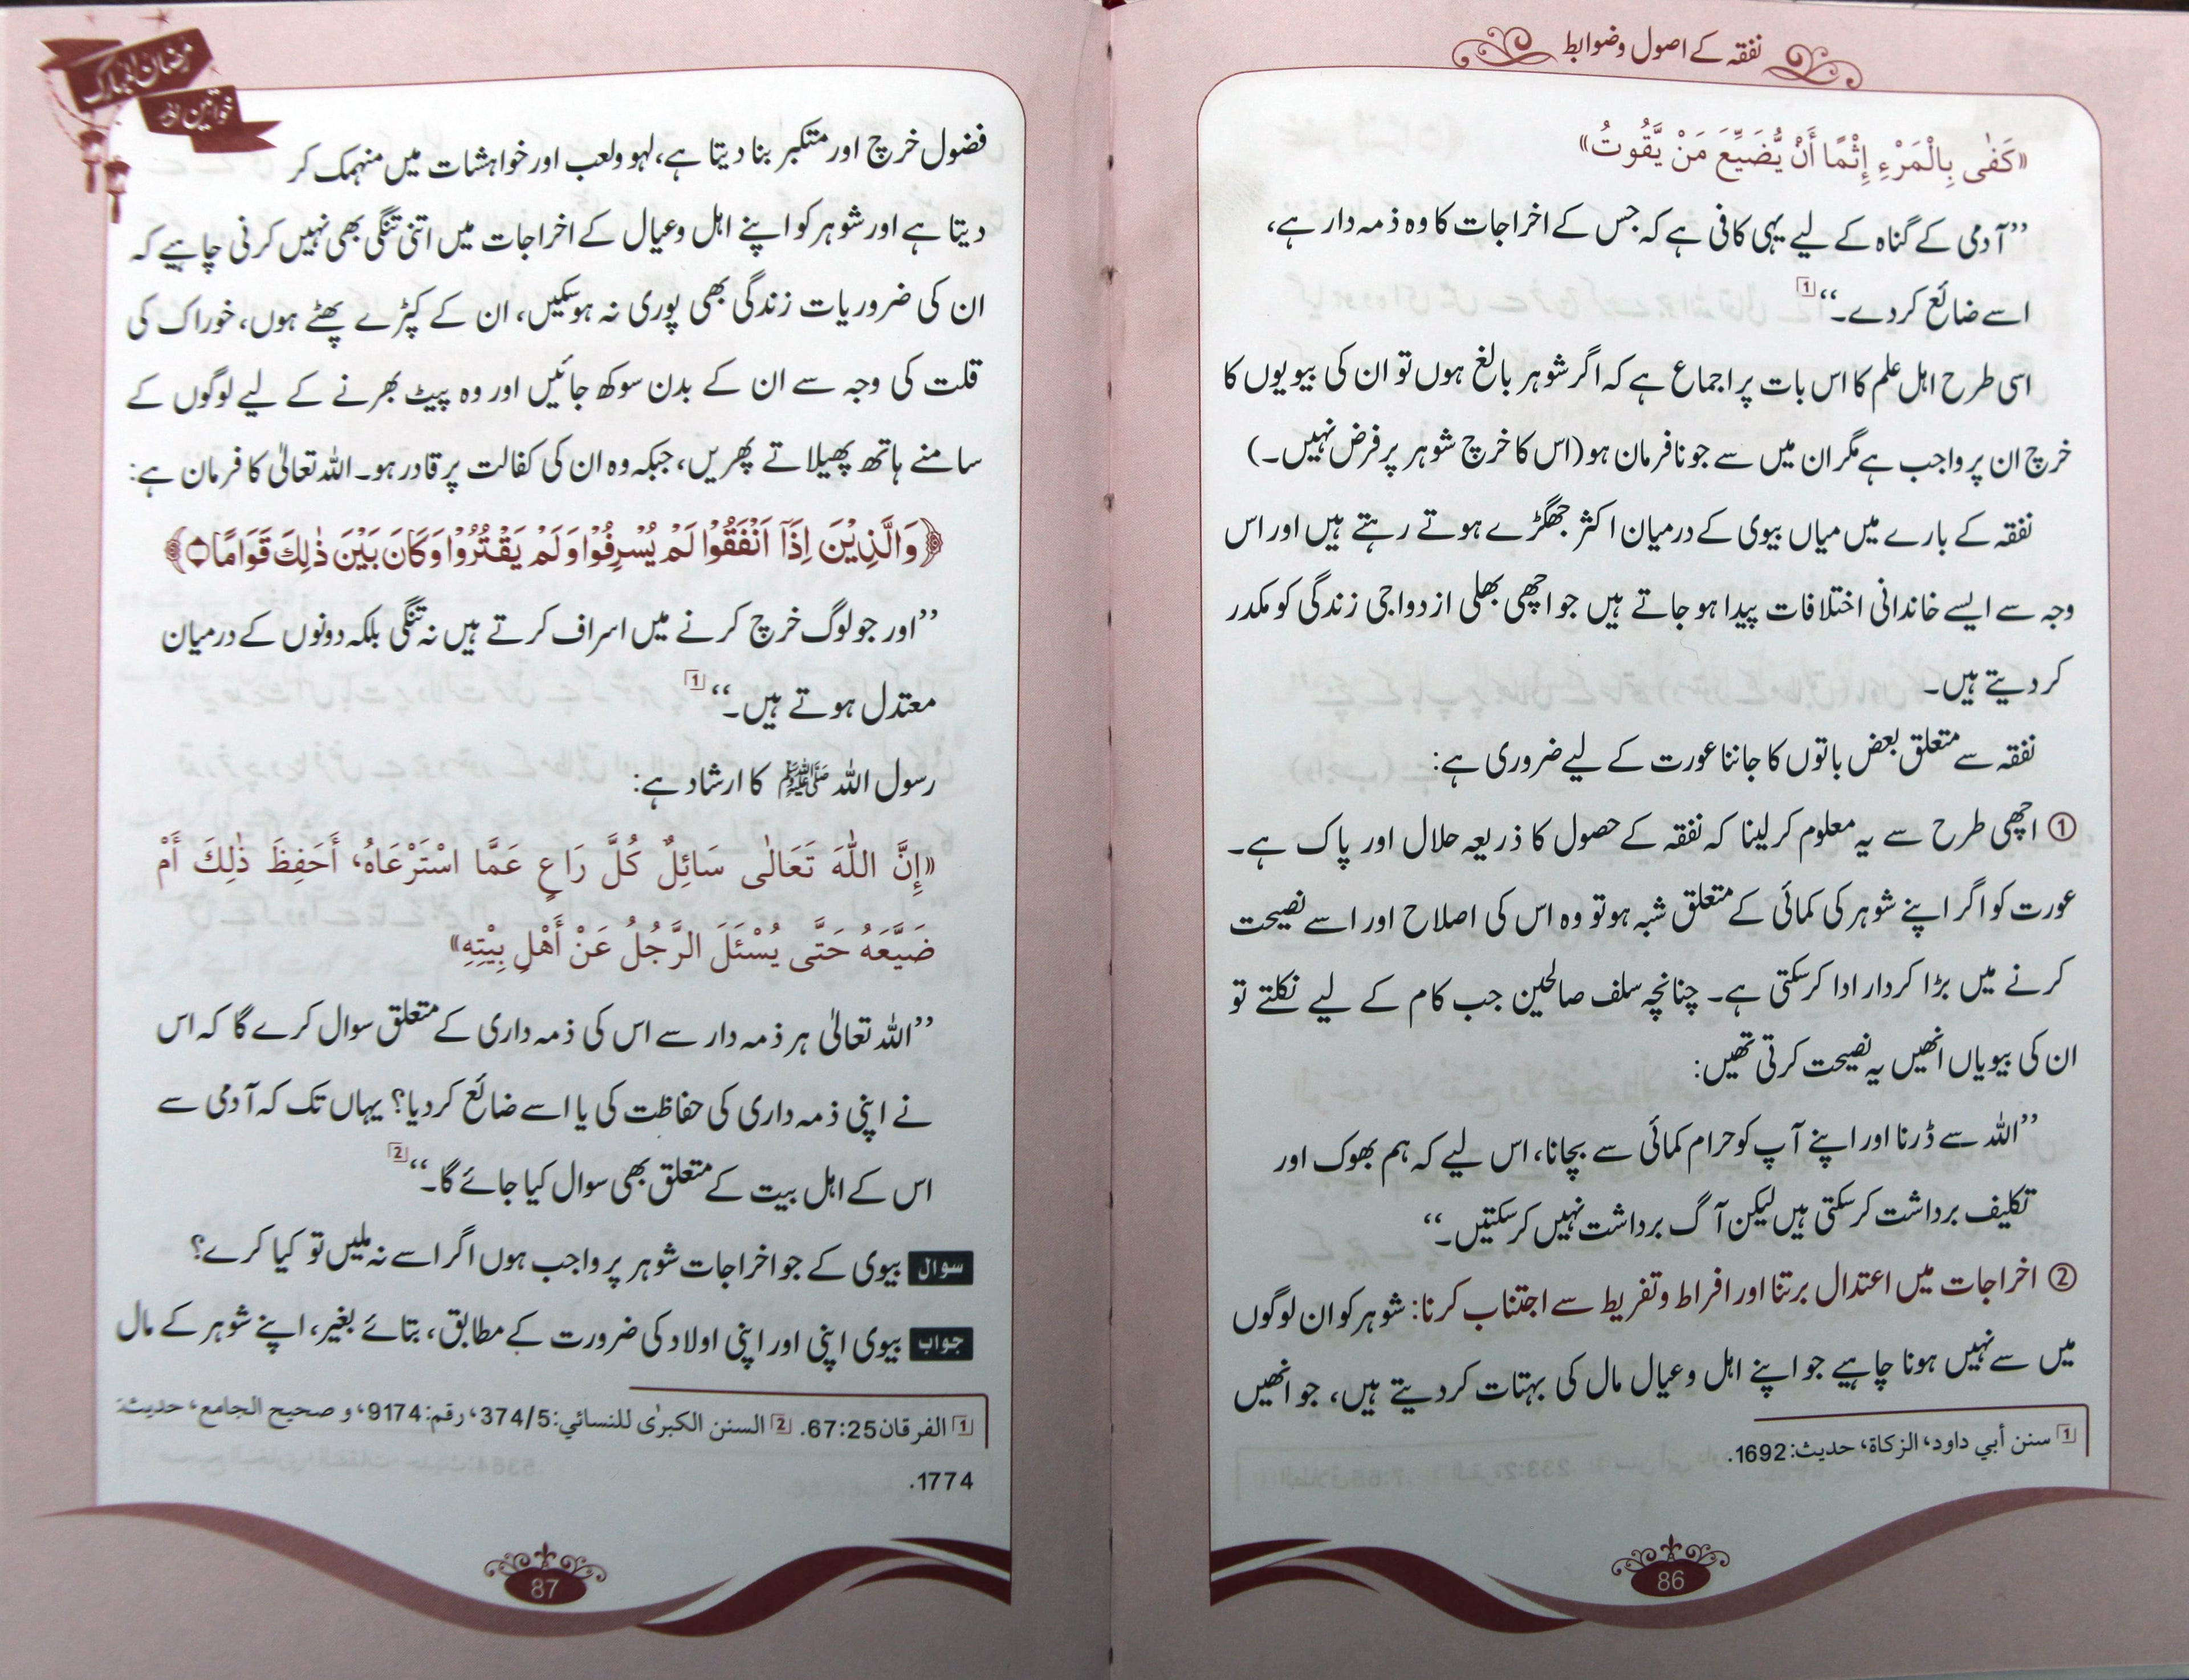 نفقہ کے اصول و ضوابط
«كَفٰى بِالْمَرْءِ إِثْمًا أَنْ يُّضَيِّعَ مَنْ يَّقُوتُ»
’’آدمی کے گناہ کے لیے یہی کافی ہے کہ جس کے اخراجات کا وہ ذمہ دار ہے،
اسے ضائع کردے۔‘‘ 1
اسی طرح اہل علم کا اس بات پر اجماع ہے کہ اگر شوہر بالغ ہوں تو ان کی بیویوں کا
خرچ ان پر واجب ہے مگر ان میں سے جو نافرمان ہو (اس کا خرچ شوہر پر فرض نہیں۔)
نفقہ کے بارے میں میاں بیوی کے درمیان اکثر جھگڑے ہوتے رہتے ہیں اور اس
وجہ سے ایسے خاندانی اختلافات پیدا ہو جاتے ہیں جو اچھی بھلی ازدواجی زندگی کو مکدر
کر دیتے ہیں۔
نفقہ سے متعلق بعض باتوں کا جاننا عورت کے لیے ضروری ہے:
① اچھی طرح سے یہ معلوم کرلینا کہ نفقہ کے حصول کا ذریعہ حلال اور پاک ہے۔
عورت کو اگر اپنے شوہر کی کمائی کے متعلق شبہ ہو تو وہ اس کی اصلاح اور اسے نصیحت
کرنے میں بڑا کردار ادا کرسکتی ہے۔ چنانچہ سلف صالحین جب کام کے لیے نکلتے تو
ان کی بیویاں انھیں یہ نصیحت کرتی تھیں:
’’اللہ سے ڈرنا اور اپنے آپ کو حرام کمائی سے بچانا، اس لیے کہ ہم بھوک اور
تکلیف برداشت کرسکتی ہیں لیکن آگ برداشت نہیں کرسکتیں۔‘‘
② اخراجات میں اعتدال برتنا اور افراط و تفریط سے اجتناب کرنا: شوہر کو ان لوگوں
میں سے نہیں ہونا چاہیے جو اپنے اہل و عیال مال کی بہتات کر دیتے ہیں، جو انھیں
1 سنن أبي داود، الزكاة، حديث:1692.
86
رمضان المبارک
خواتین اور
فضول خرچ اور متکبر بنا دیتا ہے، لہو و لعب اور خواہشات میں منہمک کر
دیتا ہے اور شوہر کو اپنے اہل و عیال کے اخراجات میں اتنی تنگی بھی نہیں کرنی چاہیے کہ
ان کی ضروریات زندگی بھی پوری نہ ہوسکیں، ان کے کپڑے پھٹے ہوں، خوراک کی
قلت کی وجہ سے ان کے بدن سوکھ جائیں اور وہ پیٹ بھرنے کے لیے لوگوں کے
سامنے ہاتھ پھیلاتے پھریں، جبکہ وہ ان کی کفالت پر قادر ہو۔ اللہ تعالیٰ کا فرمان ہے:
﴿وَالَّذِيْنَ اِذَآ اَنْفَقُوْا لَمْ يُسْرِفُوْا وَلَمْ يَقْتُرُوْا وَكَانَ بَيْنَ ذٰلِكَ قَوَامًا﴾
’’اور جو لوگ خرچ کرنے میں اسراف کرتے ہیں نہ تنگی بلکہ دونوں کے درمیان
معتدل ہوتے ہیں۔‘‘ 1
رسول اللہ ﷺ کا ارشاد ہے:
«إِنَّ اللّٰهَ تَعَالٰى سَائِلٌ كُلَّ رَاعٍ عَمَّا اسْتَرْعَاهُ، أَحَفِظَ ذٰلِكَ أَمْ
ضَيَّعَهُ حَتَّى يُسْئَلَ الرَّجُلُ عَنْ أَهْلِ بِيْتِهِ»
’’اللہ تعالیٰ ہر ذمہ دار سے اس کی ذمہ داری کے متعلق سوال کرے گا کہ اس
نے اپنی ذمہ داری کی حفاظت کی یا اسے ضائع کردیا؟ یہاں تک کہ آدمی سے
اس کے اہل بیت کے متعلق بھی سوال کیا جائے گا۔‘‘ 2
سوال بیوی کے جو اخراجات شوہر پر واجب ہوں اگر اسے نہ ملیں تو کیا کرے؟
جواب بیوی اپنی اور اپنی اولاد کی ضرورت کے مطابق، بتائے بغیر، اپنے شوہر کے مال
1 الفرقان67:25. 2 السنن الكبرٰى للنسائي:374/5، رقم:9174، و صحيح الجامع، حديث:
1774.
87